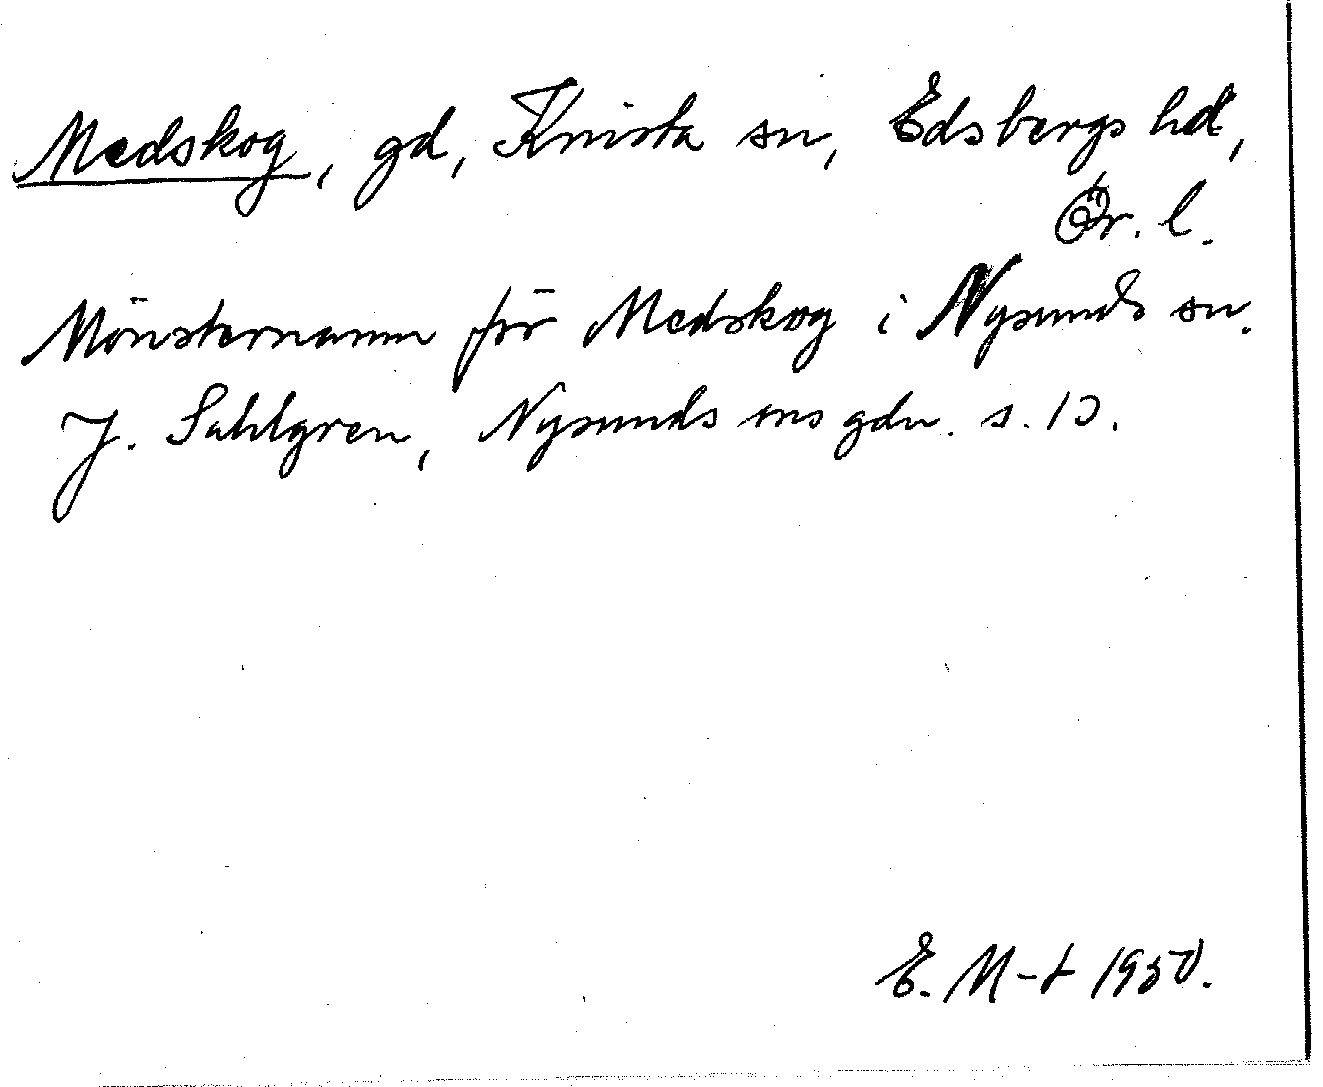 Medskog, gd, Knista sn, Edsbergs hd,
Ör. l.
Mönsternamn för Medskog i Nysunds sn.
J. Sahlgren, Nysunds sns gdn. s. 10.
E. M-t 1950.